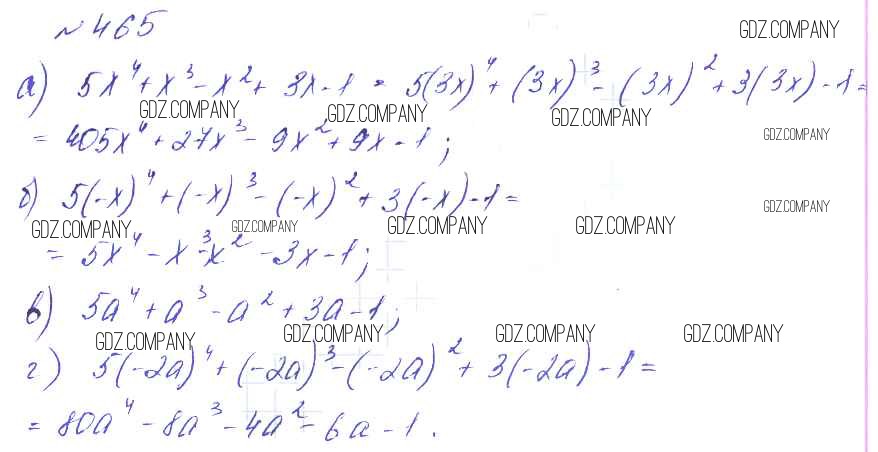 №465
GDZ.COMPANY
а) 5x⁴+x³-x²+3x-1 = 5(3x)⁴+(3x)³-(3x)²+3(3x)-1=
GDZ.COMPANY GDZ.COMPANY GDZ.COMPANY
= 405x⁴+27x³-9x²+9x-1;
GDZ.COMPANY
б) 5(-x)⁴+(-x)³-(-x)²+3(-x)-1=
GDZ.COMPANY
GDZ.COMPANY GDZ.COMPANY GDZ.COMPANY GDZ.COMPANY
= 5x⁴-x³-x²-3x-1;
в) 5a⁴+a³-a²+3a-1;
GDZ.COMPANY GDZ.COMPANY GDZ.COMPANY GDZ.COMPANY
г) 5(-2a)⁴+(-2a)³-(-2a)²+3(-2a)-1=
= 80a⁴-8a³-4a²-6a-1.